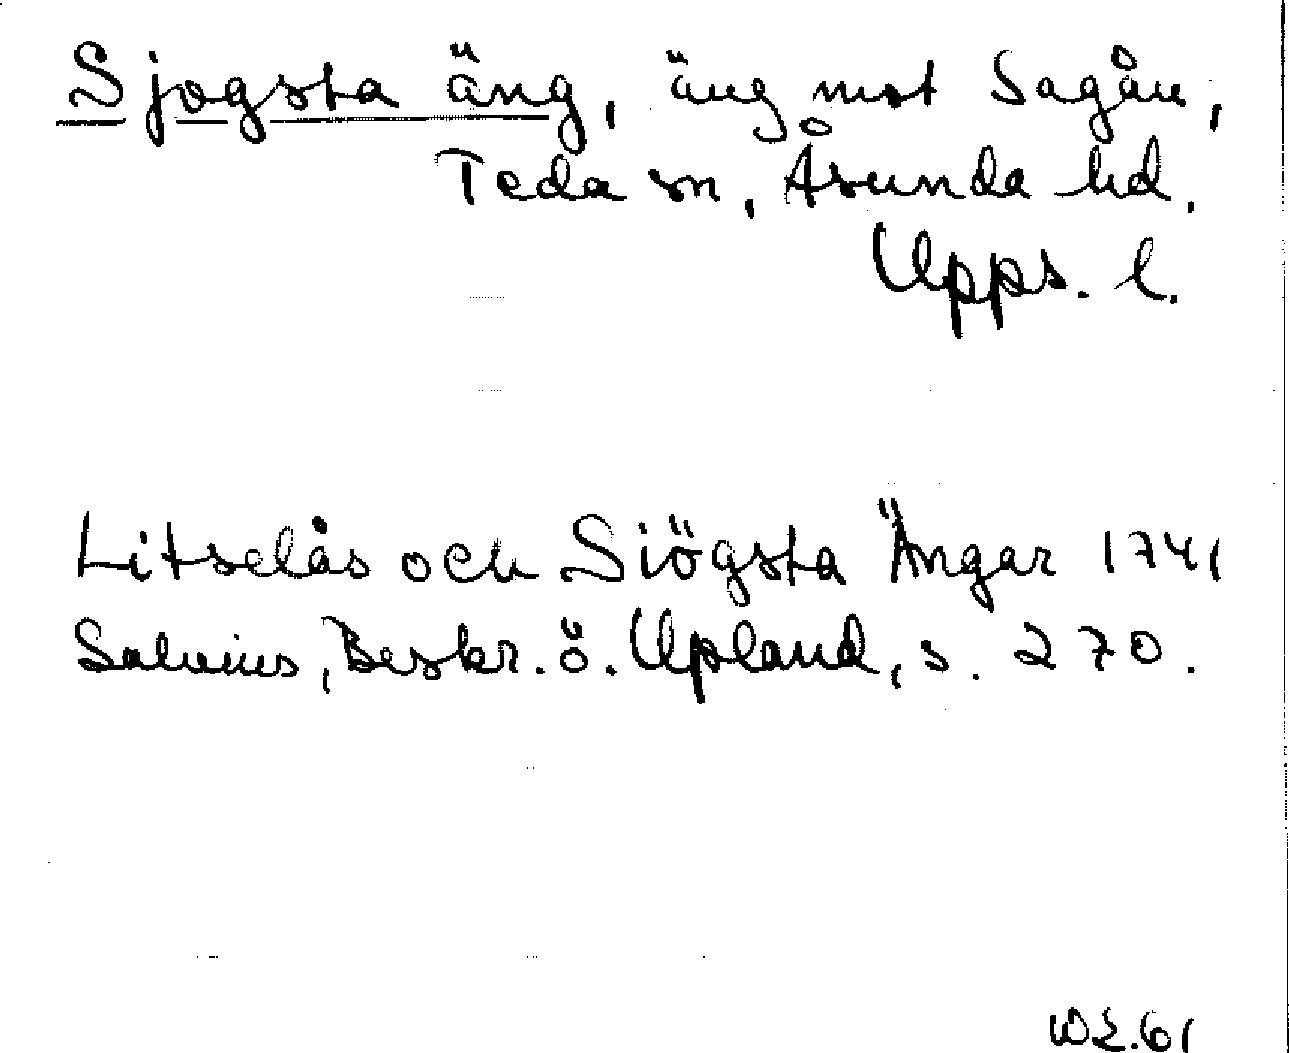 Sjogsta äng, äng mot Sagån,
Teda sn, Åsunda hd.
Upps. l.
Litselås och Siögsta Ängar 1741
Salvius, Beskr. ö. Upland, s. 270.
WL.61